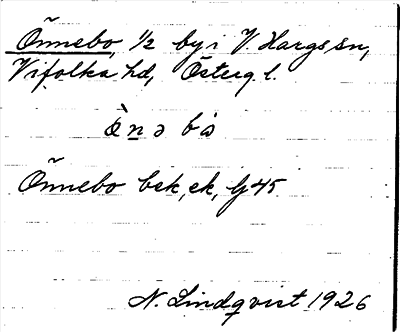 Önnebo, 1/2 by i V. Hargs sn,
Vifolka hd, Österg. l.
Önnebo bek, ek, Gj 45
N. Lindqvist 1926